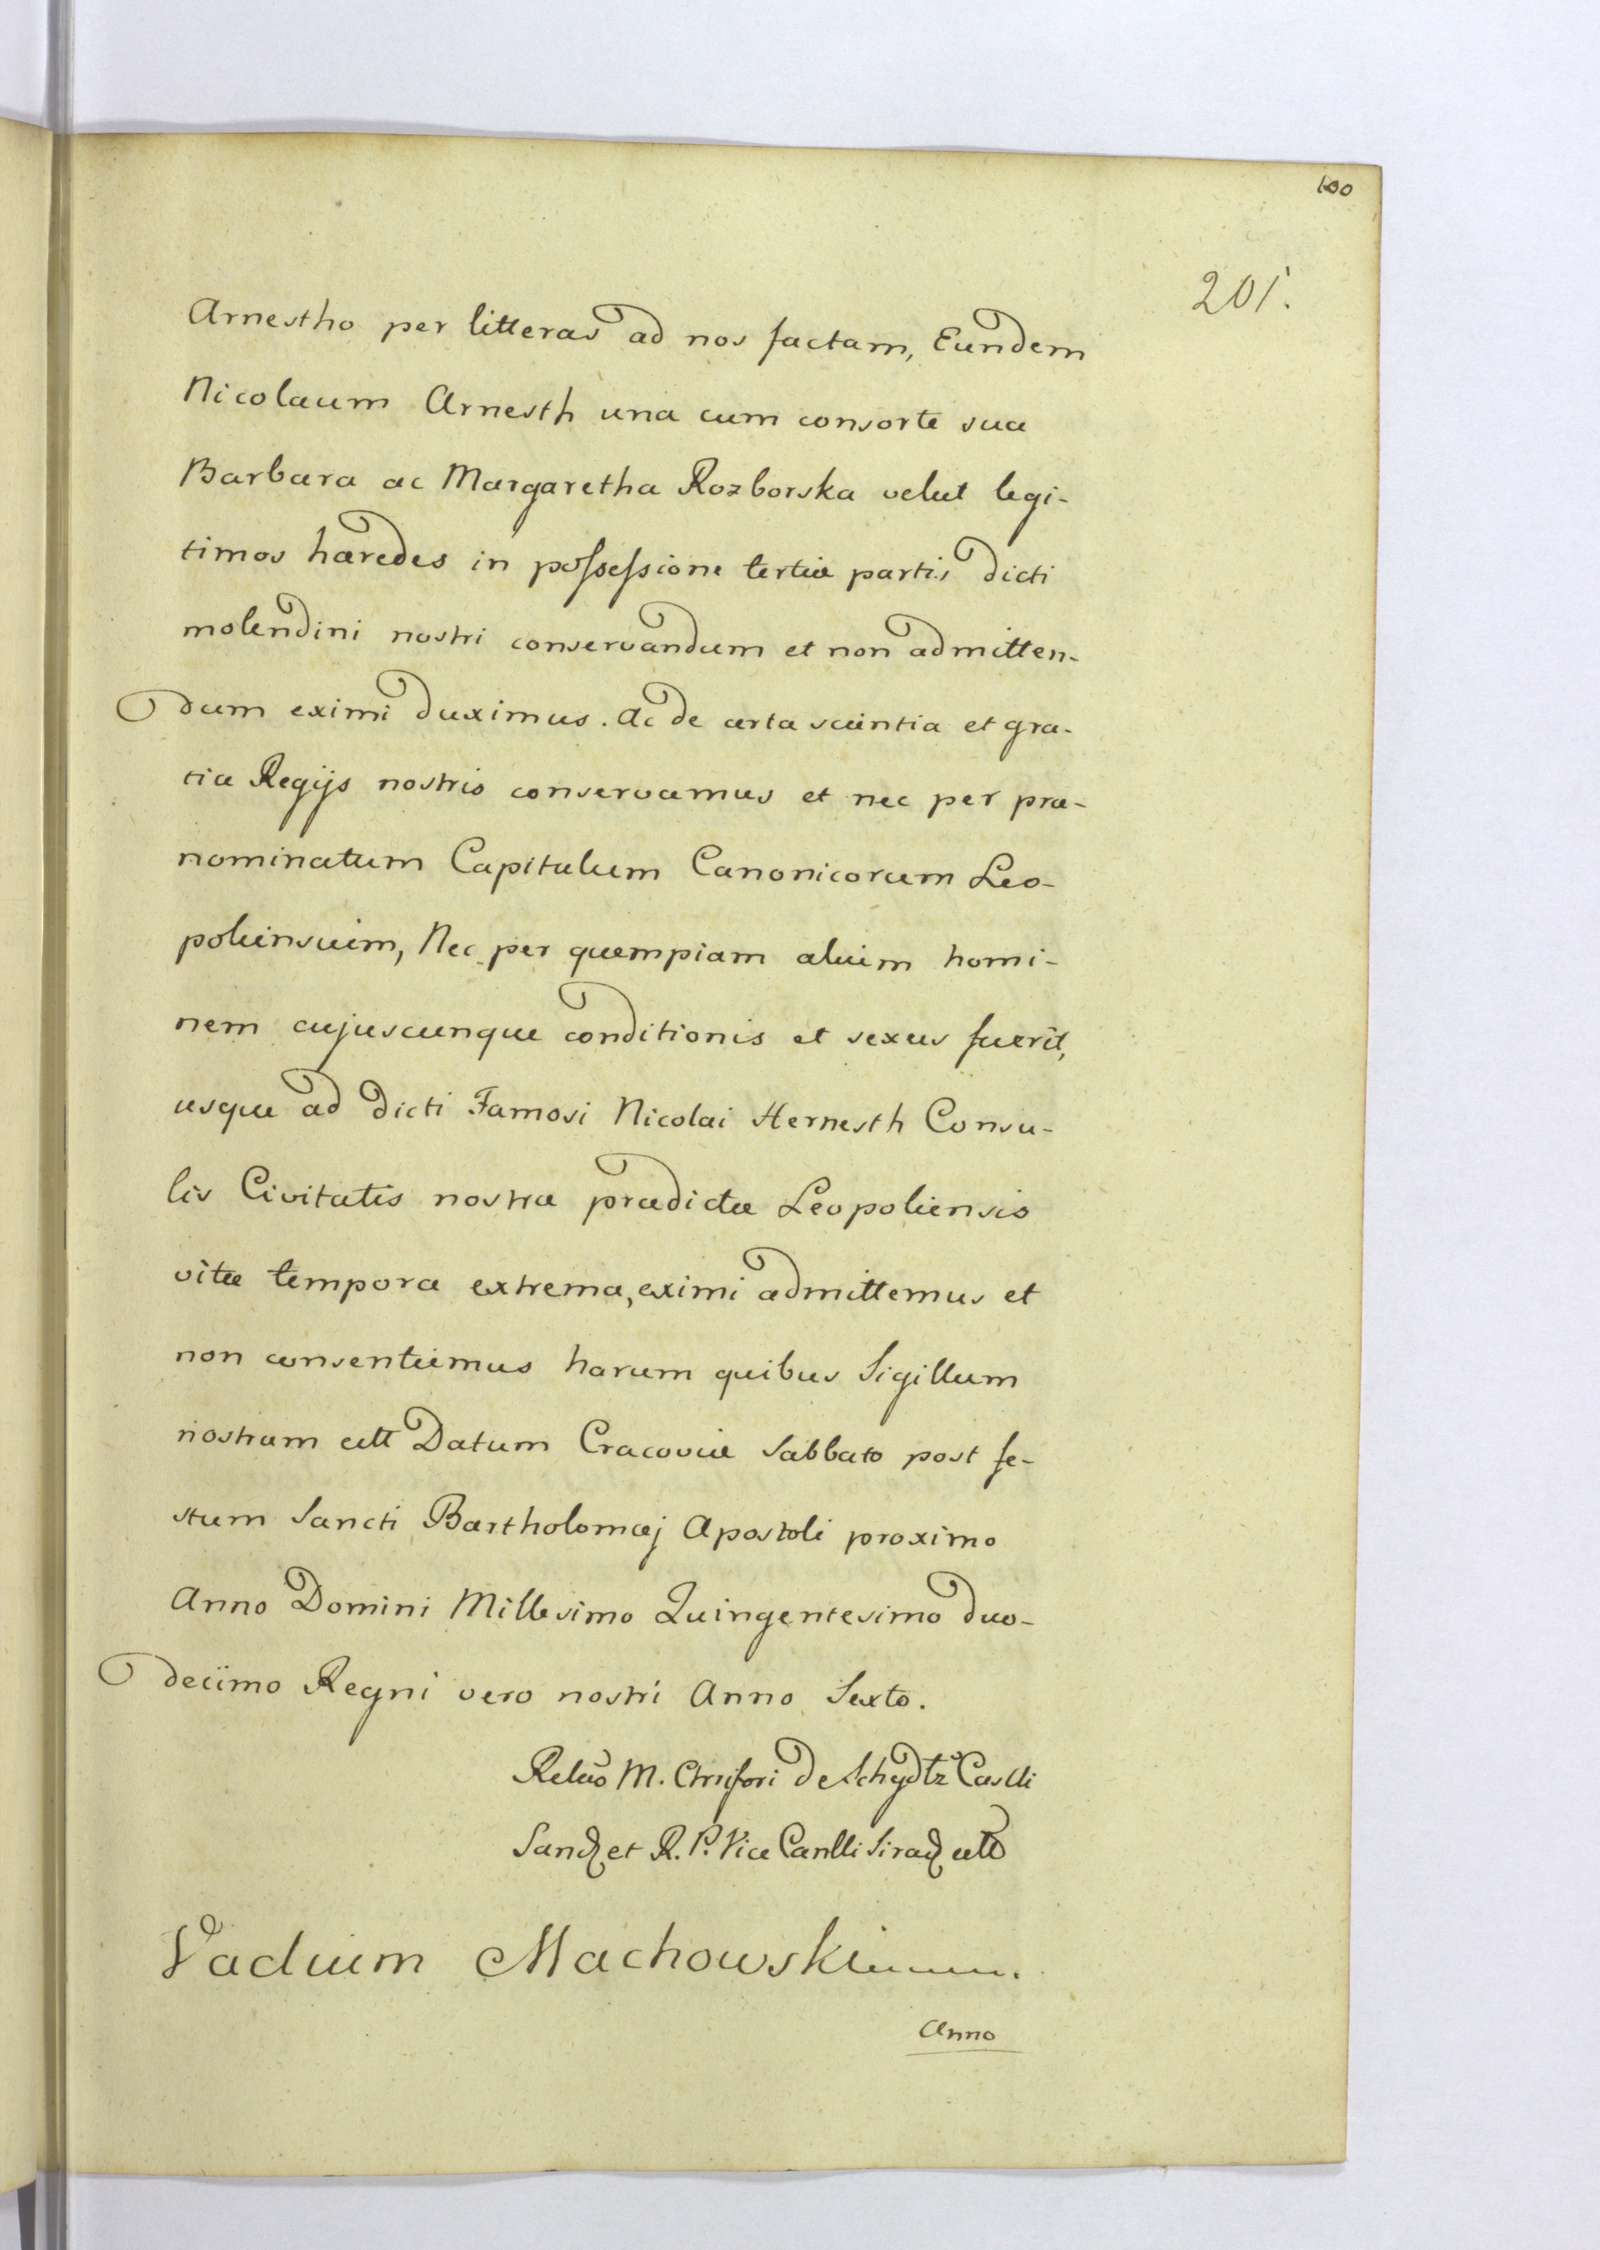 100
201.
Arnestho per litteras ad nos factam, Eundem
Nicolaum Arnesth una cum consorte sua
Barbara ac Margaretha Rozborska velut legi-
timos hæredes in possessione tertiæ partis dicti
molendini nostri conservandum et non admitten-
dum eximi duximus. Ac de certa scientia et gra-
tia Regijs nostris conservamus et nec per præ-
nominatum Capitulum Canonicorum Leo-
poliensium, Nec per quempiam alium homi-
nem cujuscunque conditionis et sexus fuerit,
usque ad dicti Famosi Nicolai Hernesth Consu-
lis Civitatis nostræ prædictæ Leopoliensis
vitæ tempora extrema, eximi admittemus et
non consentiemus harum quibus Sigillum
nostrum ett Datum Cracoviæ Sabbato post fe-
stum Sancti Bartholomæj Apostoli proximo
Anno Domini Millesimo Quingentesimo duo-
decimo Regni vero nostri Anno Sexto.
M. de Schydtz Castli
et R. P. Vice Canlli
Vadium Machowskiuuuu.
Anno